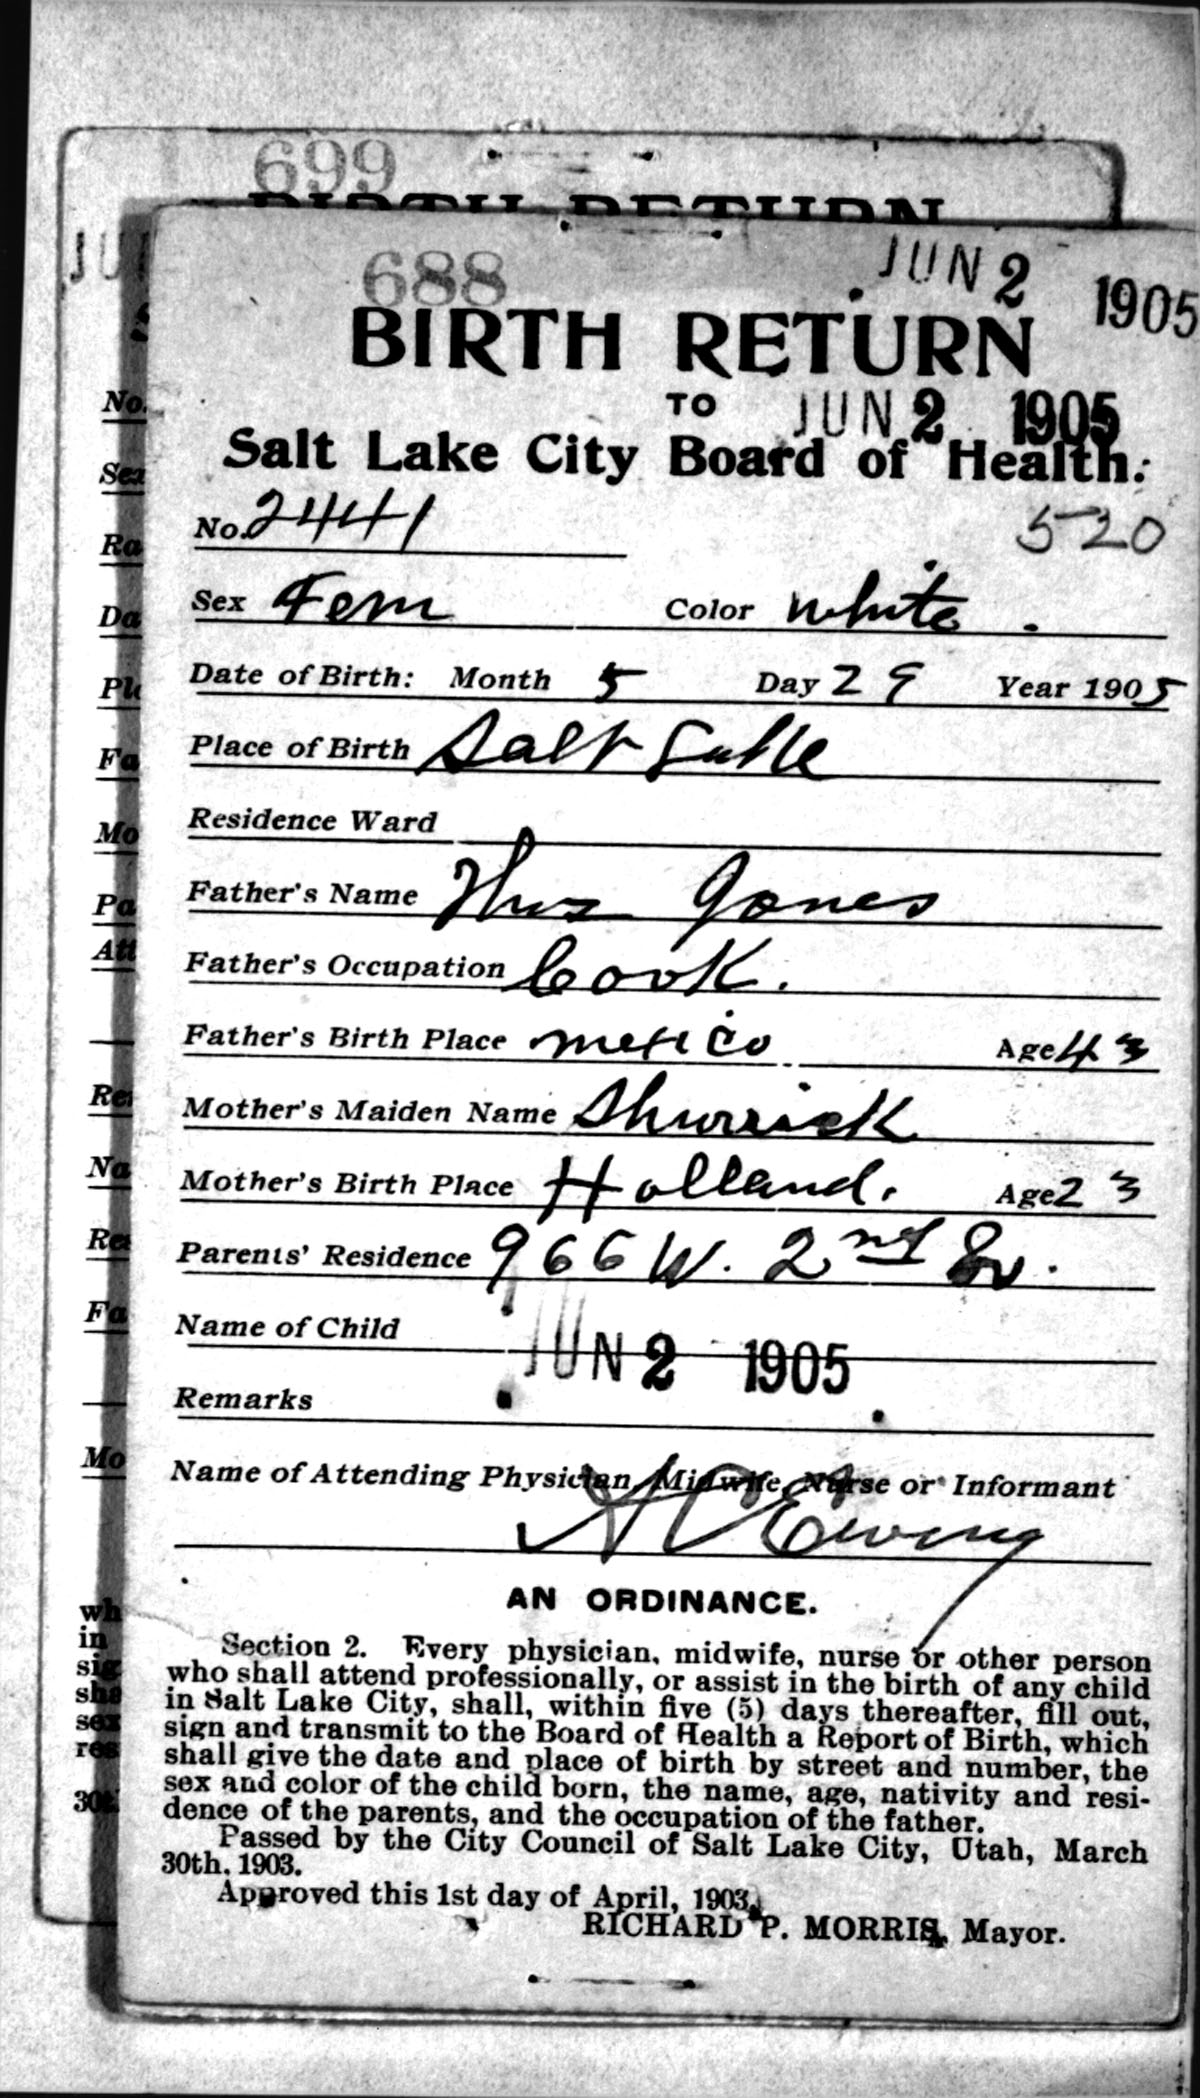 699
BIRTH RETURN
JU
688
JUN 2 1905
BIRTH RETURN
TO JUN 2 1905
Salt Lake City Board of Health.
No. 2441 520
Sex Fem Color white.
Date of Birth: Month 5 Day 29 Year 1905
Place of Birth Salt Lake
Residence Ward
Father's Name Thos Jones
Father's Occupation Cook.
Father's Birth Place mexico Age 43
Mother's Maiden Name
Mother's Birth Place Holland. Age 23
Parents' Residence 966 W. 2nd So.
Name of Child
JUN 2 1905
Remarks
Name of Attending Physician, Midwife, Nurse or Informant
A C Ewing
AN ORDINANCE.
Section 2. Every physician, midwife, nurse or other person
who shall attend professionally, or assist in the birth of any child
in Salt Lake City, shall, within five (5) days thereafter, fill out,
sign and transmit to the Board of Health a Report of Birth, which
shall give the date and place of birth by street and number, the
sex and color of the child born, the name, age, nativity and resi-
dence of the parents, and the occupation of the father.
Passed by the City Council of Salt Lake City, Utah, March
30th, 1903.
Approved this 1st day of April, 1903.
RICHARD P. MORRIS, Mayor.
No.
Sex
Ra
Da
Pl
Fa
Mo
Pa
Att
Re
Na
Re
Fa
Mo
wh
in
sig
sha
sex
res
30t